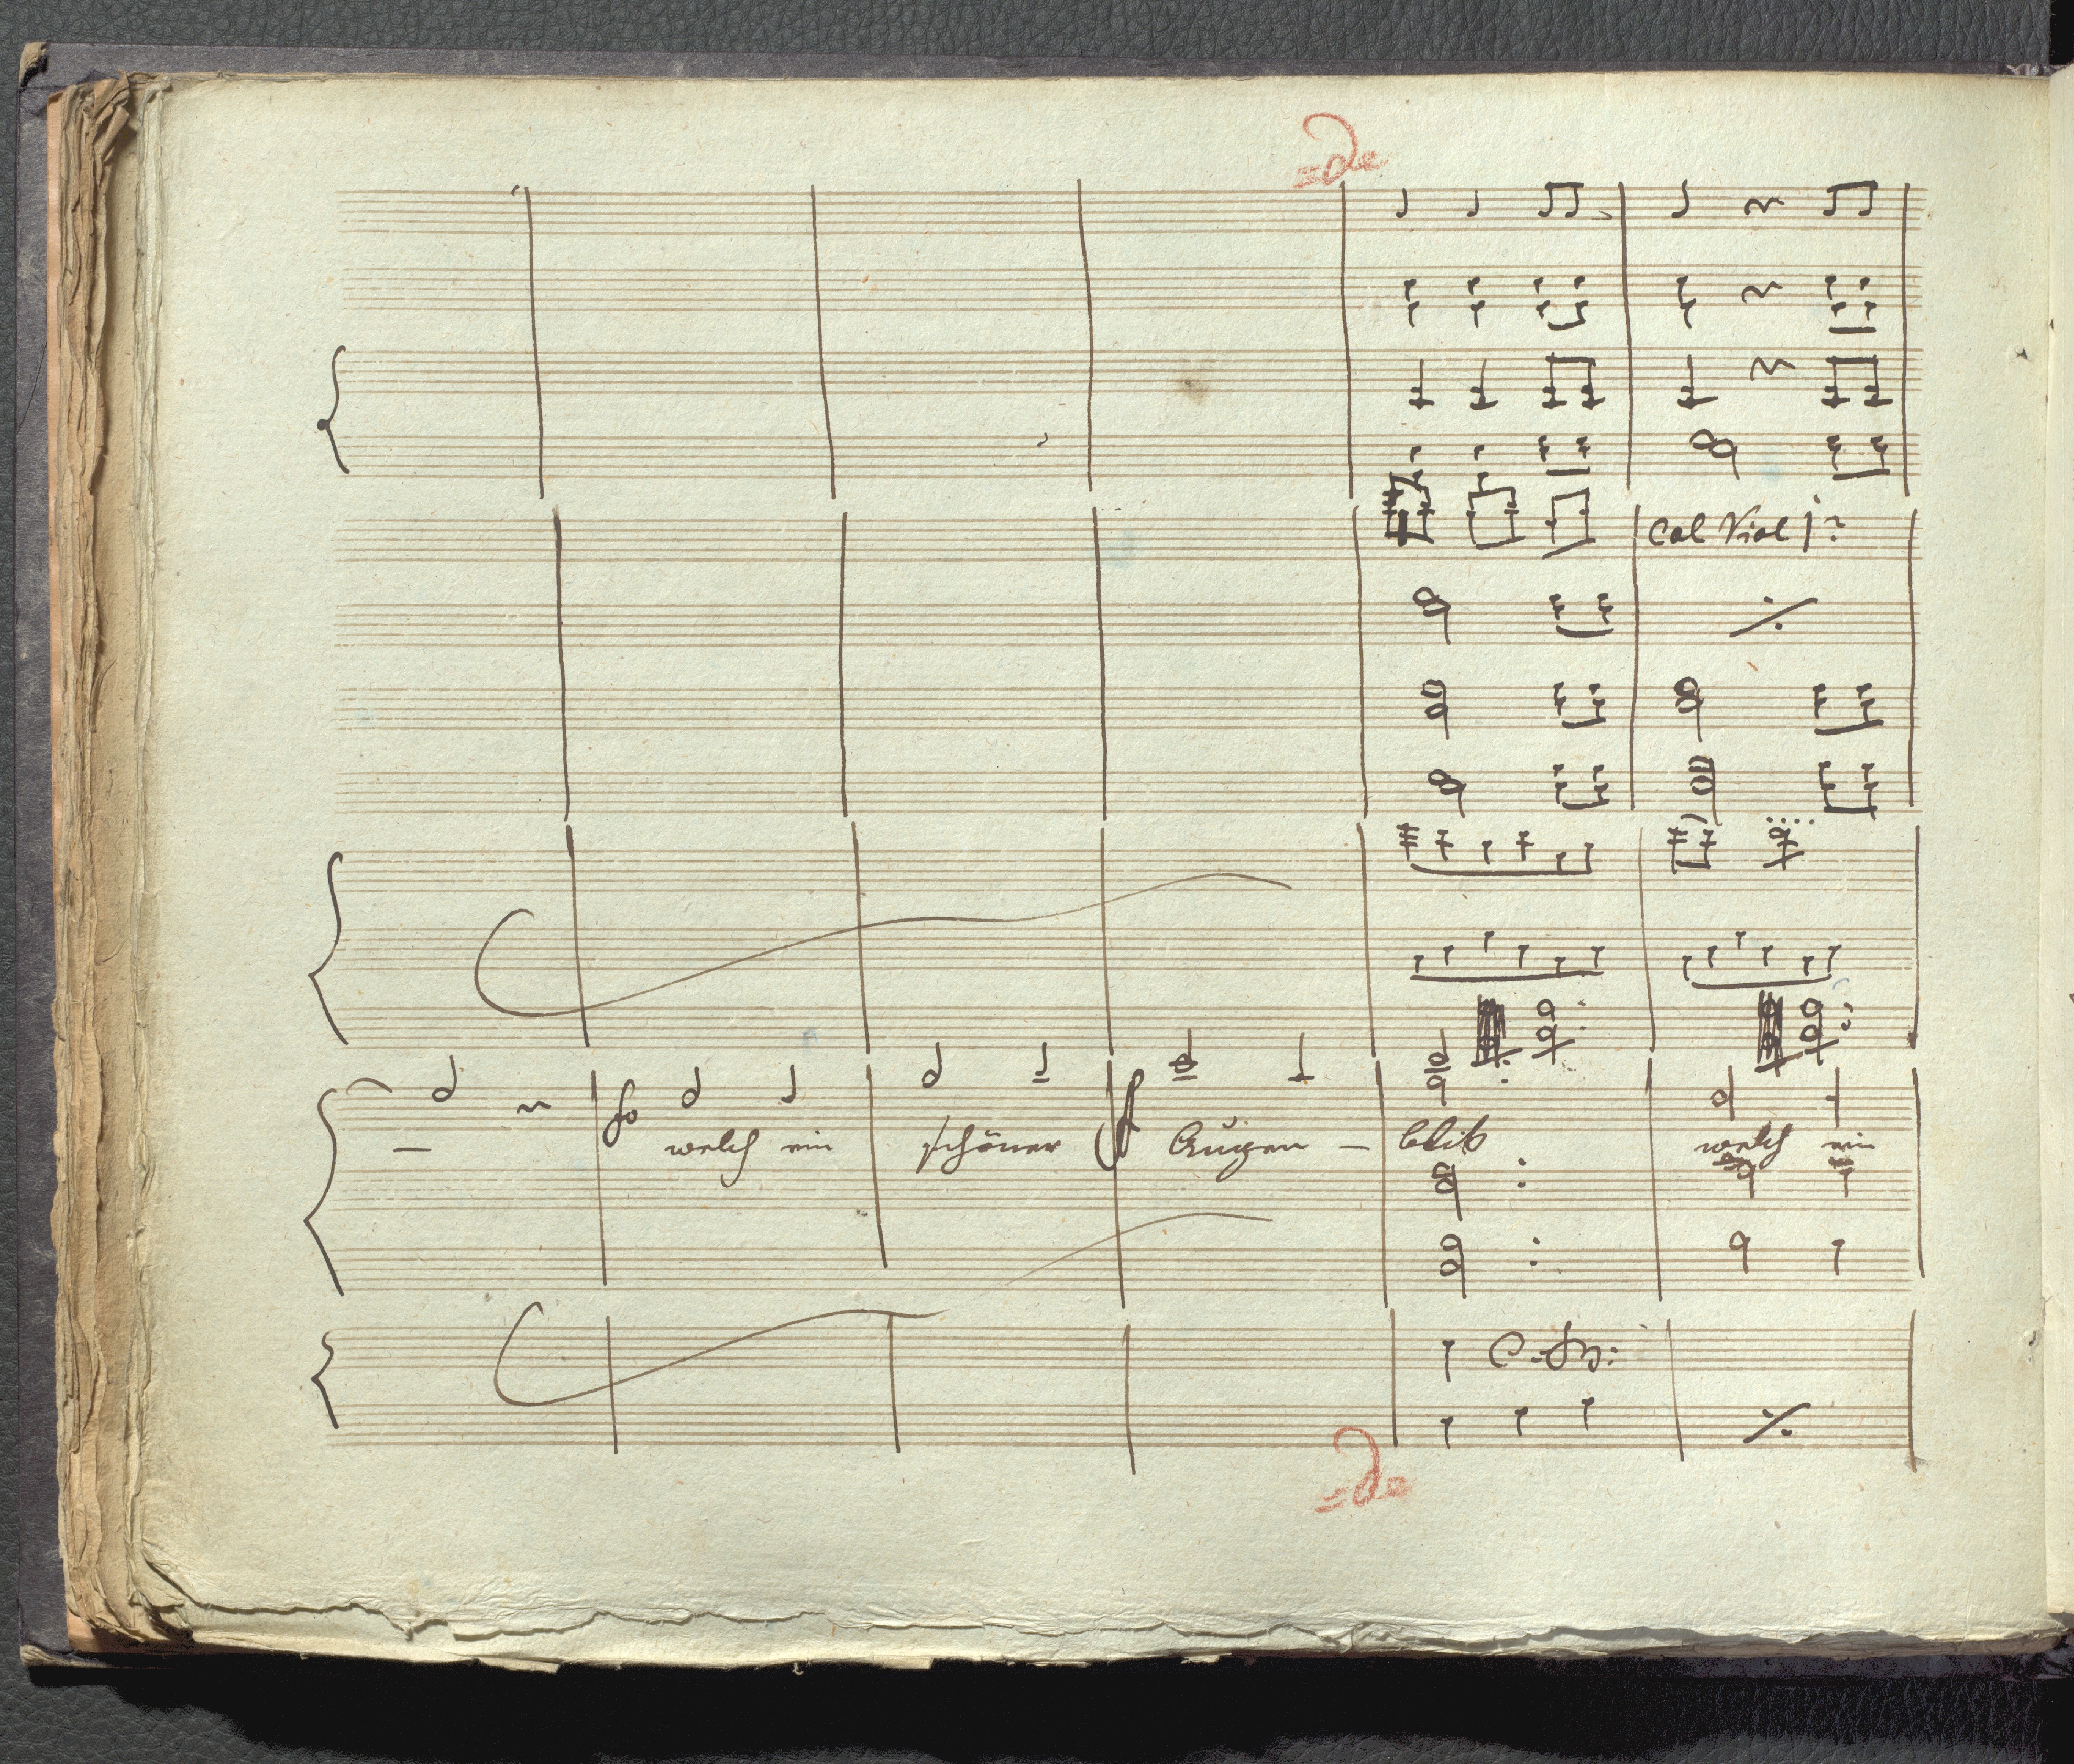 =de
Col Viol 1º
fo welch ein schöner ff Augen – blik welch ein
=de